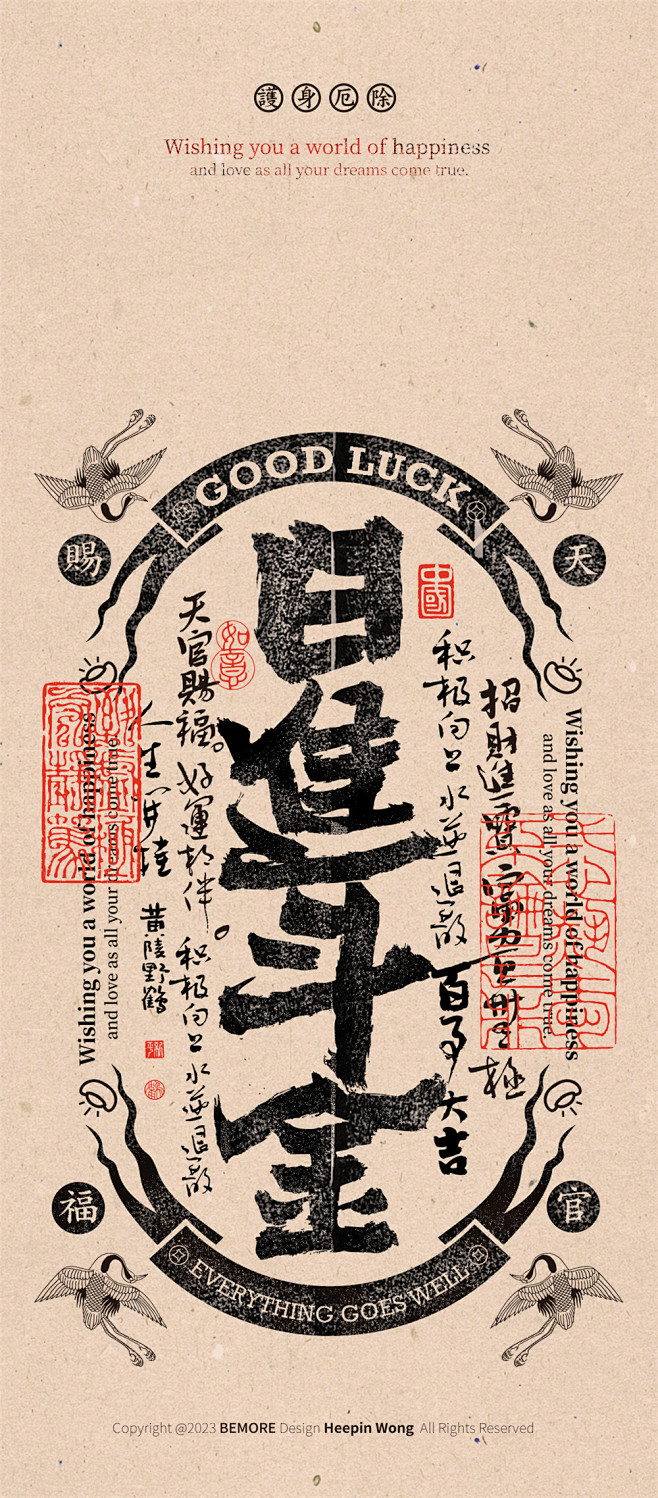 護身厄除
Wishing you a world of happiness
and love as all your dreams come true.
GOOD LUCK
賜
天
日進斗金
中國
如意
积极向上 水逆退散
招財進寶
百事大吉
天官賜福。好運相伴。
积极向上 水逆退散
人生
黄陵野鶴
Wishing you a world of happiness
and love as all your dreams come true.
Wishing you a world of happiness
and love as all your dreams come true.
福
官
EVERYTHING GOES WELL
Copyright @2023 BEMORE Design Heepin Wong All Rights Reserved